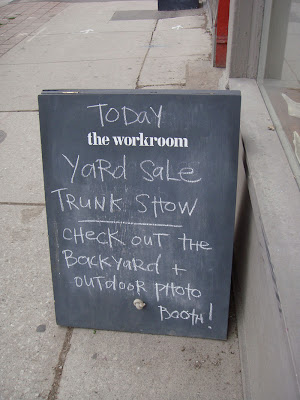 TODAY
the workroom
YARD SALE
TRUNK SHOW
CHECK OUT THE
BACKYARD +
OUTDOOR PHOTO
BOOTH!